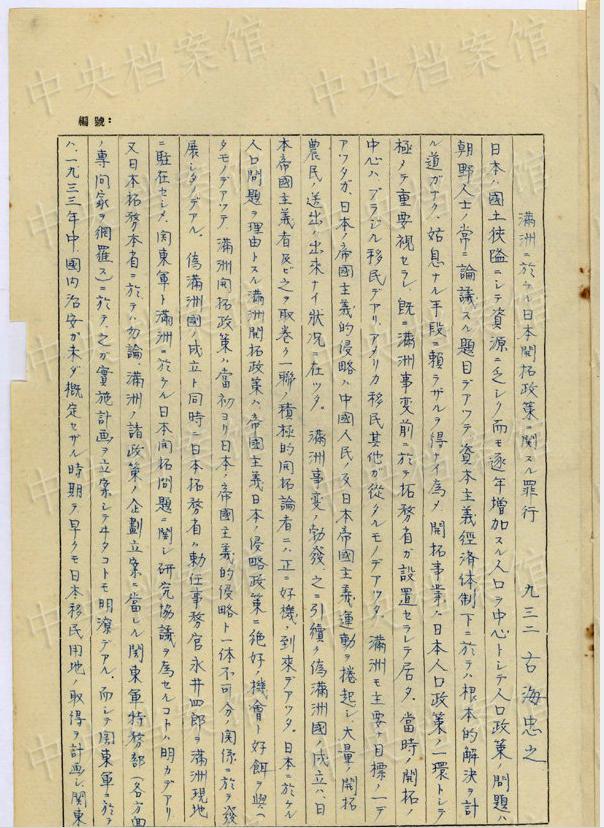 中央档案馆
編號:
満洲ニ於ケル日本開拓政策ニ関スル罪行
九三三 古海忠之
日本ハ國土狹隘ニシテ資源ニ乏シク而モ逐年増加スル人口ヲ中心トシテ人口政策ノ問題ハ
朝野人士ノ常ニ論議スル題目デアツテ資本主義經済体制下ニ於テハ根本的解決ヲ計
ル道ガナク、姑息ナル手段ニ頼ラザルヲ得ナイ為メ開拓事業ハ日本人口政策ノ一環トシテ
極メテ重要視セラレ、既ニ満洲事変前ニ於テ拓務省ガ設置セラレテ居タ。當時ノ開拓ノ
中心ハブラジル移民デアリ、アメリカ移民其他ガ從タルモノデアツタ。満洲モ主要ナ目標ノ一デ
アツタガ、日本ノ帝國主義的侵略ハ中國人民ノ反日本帝國主義運動ヲ捲起シ、大量ノ開拓
農民ノ送出ハ出来ナイ狀况ニ在ツタ。 満洲事変ノ勃發、之ニ引續ク偽満洲國ノ成立ハ、日
本帝國主義者及ビ之ヲ取巻ク一聯ノ積極的開拓論者ニハ正ニ好機ノ到來デアツタ。日本ニ於ケル
人口問題ヲ理由トスル満洲開拓政策ハ帝國主義日本ノ侵略政策ニ絶好ノ機會ト好餌ヲ與ヘ
タモノデアツテ満洲開拓政策ハ當初ヨリ日本ノ帝國主義的侵略ト一体不可分ノ関係ニ於テ發
展シタノデアル。 偽満洲國ノ成立ト同時ニ日本拓務省ハ勅任事務官永井四郎ヲ満洲現地
ニ駐在セシメ、関東軍ト満洲ニ於ケル日本開拓問題ニ関シ研究協議ヲ為セルコトハ明カデアリ
又日本拓務本省ニ於テハ勿論満洲ノ諸政策ノ企劃立案ニ當レル関東軍特務部(各方面
ノ専門家ヲ網羅ス)ニ於テ、之ガ實施計画ヲ立案シテヰタコトモ明瞭デアル。而シテ関東軍ニ於テ
ハ、一九三三年中、國内治安ガ未ダ概定セザル時期ヲ早クモ日本移民用地ノ取得ヲ計画シ、関東